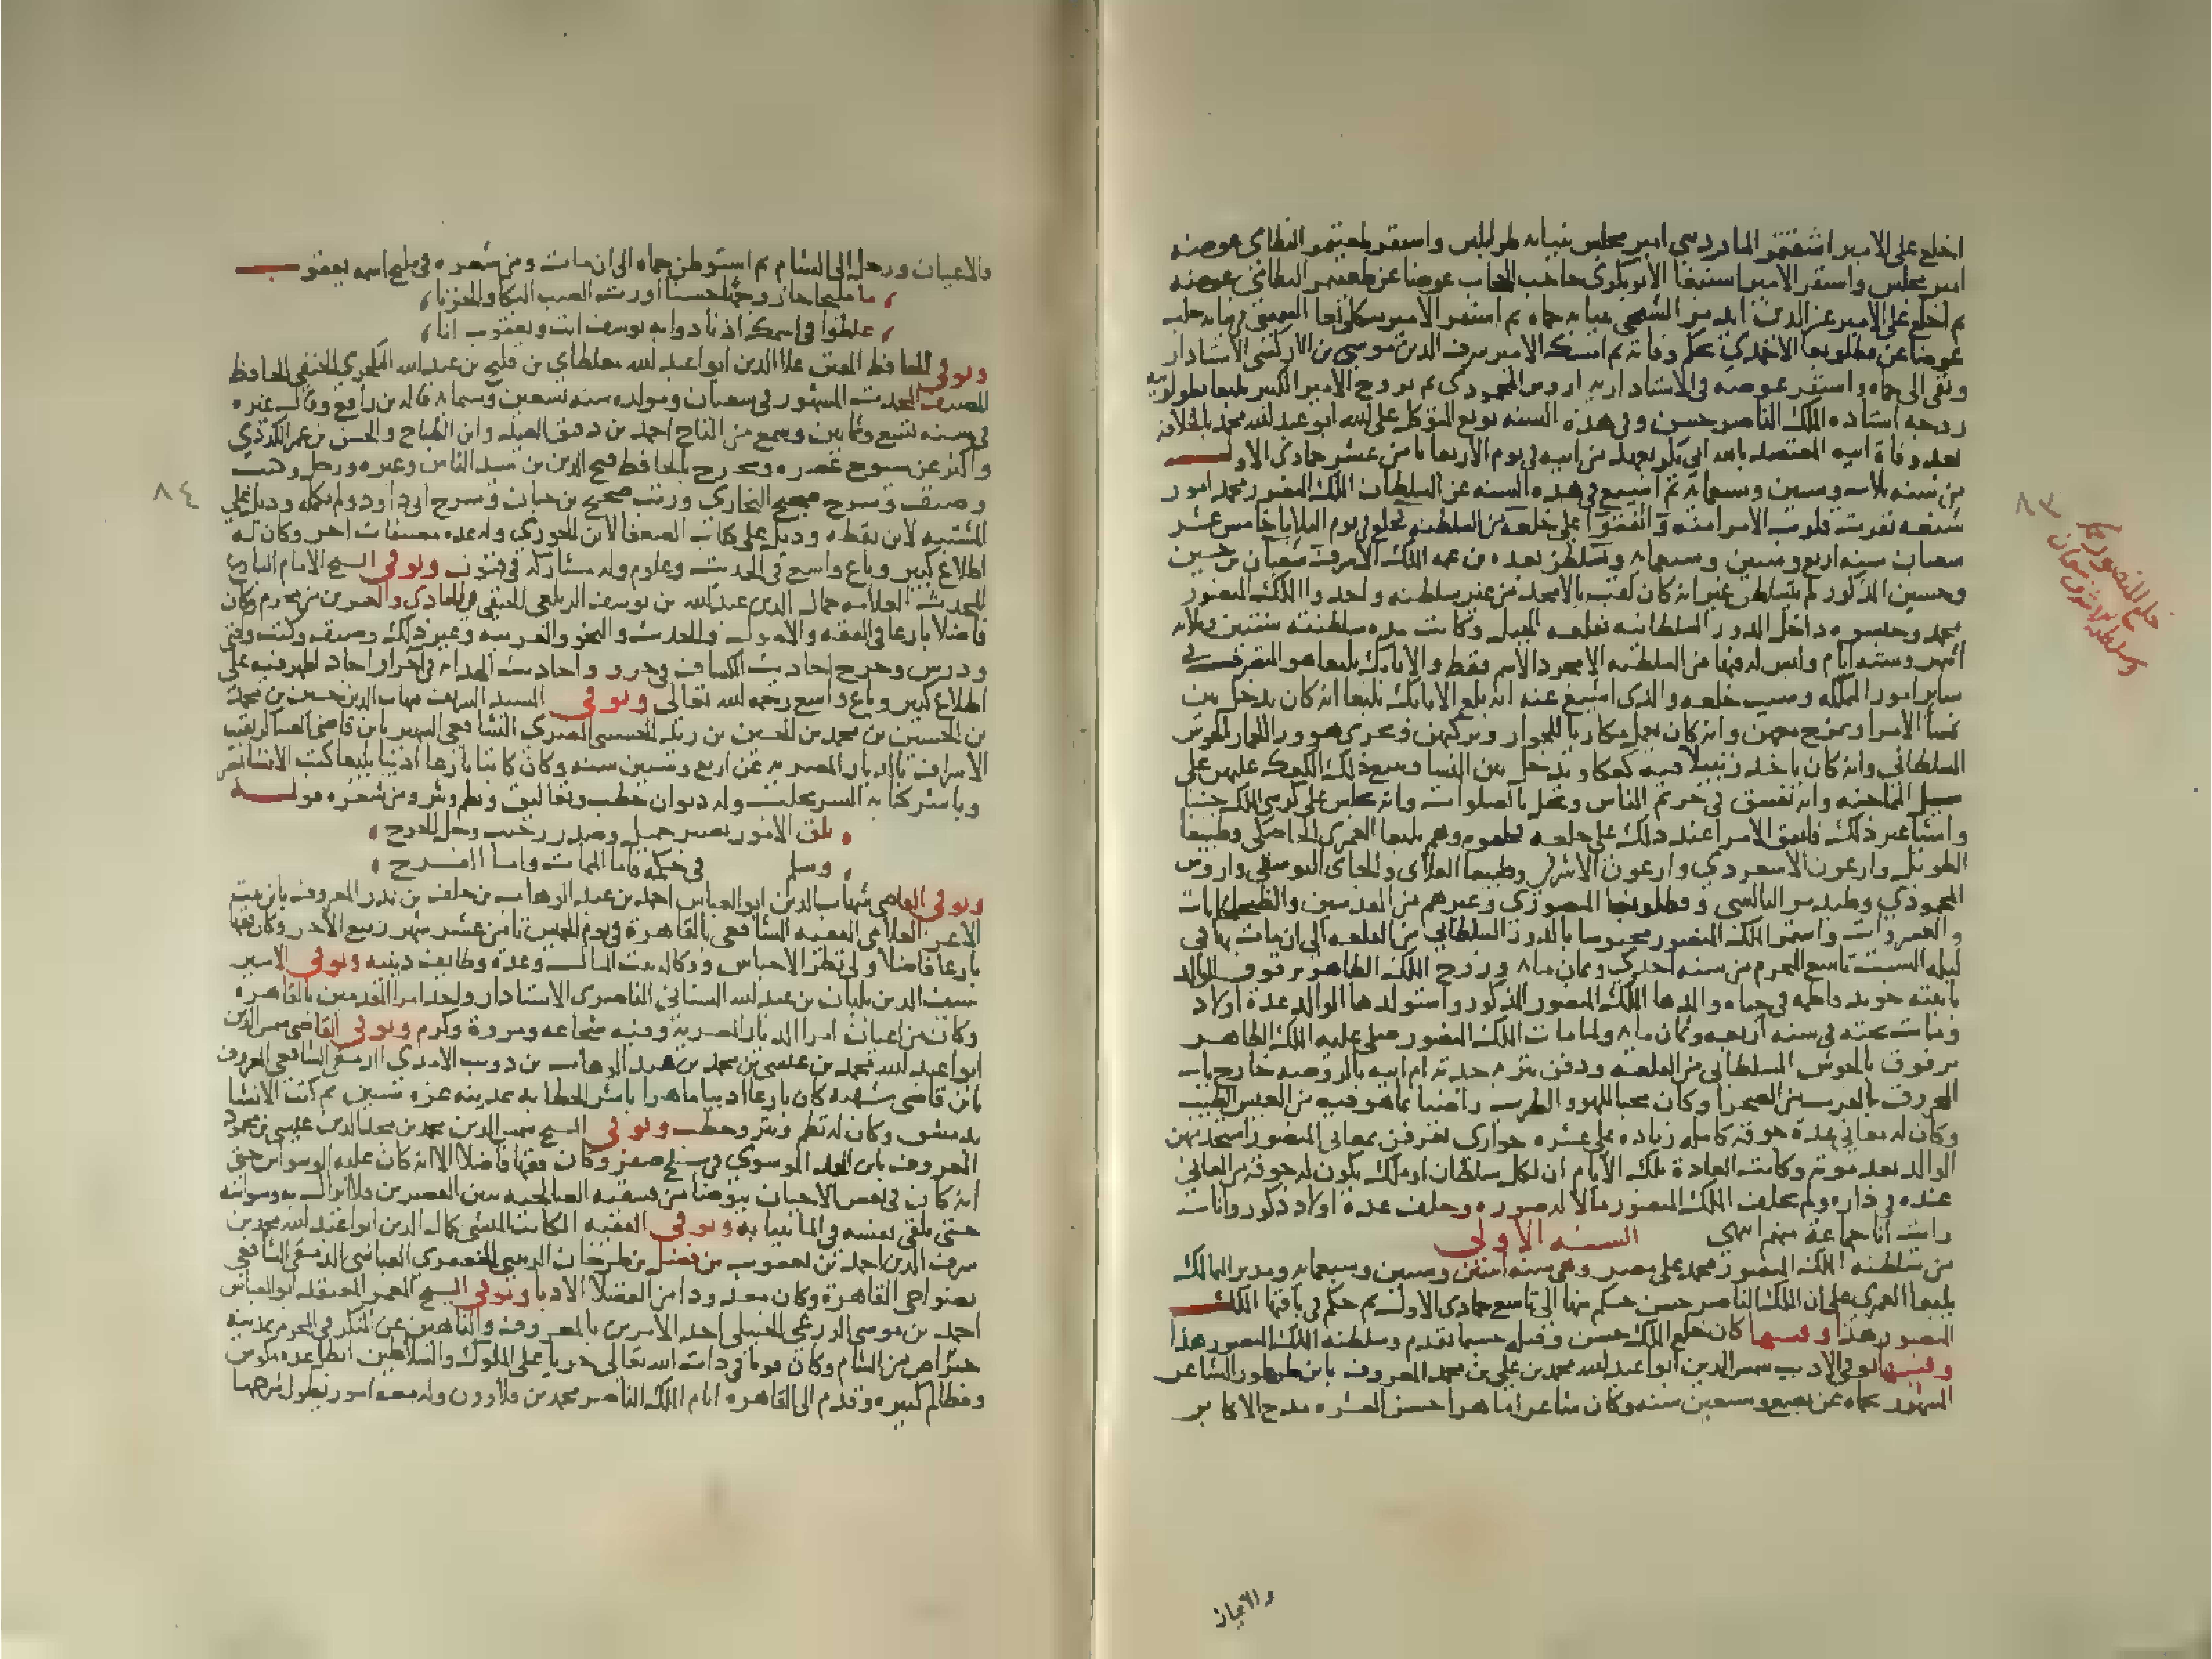 اخلع على الامير اشقتمر الماردينى امير مجلس بنيابه طرابلس واستقر طغيتمر النظامى عوضه
امير مجلس واستقر الامير اسنبغا الابوبكرى حاجب الحجاب عوضا عن طغيتمر النظامى عوضه
ثم اخلع على الامير عز الدين ايدمر الشيخى بنيابه حماه ثم استقر الامير منكلى بغا الشمسى فى نيابه حلب
عوضا عن قطلوبغا الاحمدى بحكم وفاته ثم امسك الامير شرف الدين موسى بن الازكشى الاستادار
ونفى الى حماه واستقر عوضه فى الاستاداريه اروس المحمودى ثم تزوج الامير الكبير يلبغا بطولوبيه
زوجه استاده الملك الناصر حسن وفى هذه السنه بويع المتوكل على الله ابو عبد الله محمد بالخلافه
بعد وفاة ابيه المعتضد بالله ابى بكر بعهد من ابيه فى يوم الاربعا ثامن عشر جمادى الاول
من سنه ثلاث وستين وسبعمائه ثم اشيع فى هذه السنه عن السلطان الملك المنصور محمد امور
شنعه نفرت قلوب الامرا منه واتفقوا على خلعه من السلطنه فخلع فى يوم الثلاثا خامس عشر
شعبان سنه اربع وستين وسبعمائه وتسلطن بعده بن عمه الملك الاشرف شعبان بن حسين
وحسين المذكور لم يتسلطن غير انه كان لقب بالامجد من غير سلطنه واخد الملك المنصور
محمد وحبسوه داخل الدور السلطانيه بقلعه الجبل وكانت مده سلطنته سنتين وثلاثه
اشهر وسته ايام وليس له فيها من السلطنه الا مجرد الاسم فقط والاتابك يلبغا هو المتصرف فى
ساير امور المملكه وسبب خلعه والذى اشيع عنه انه بلغ الاتابك يلبغا انه كان يدخل بين
نسا الامرا ويمزح معهن وانه كان يعمل مكاريا للجوار ويركبهن ويجرى هو ورا الحمار بالحوش
السلطانى وانه كان ياخد زنبيلا فيه كعكا ويدخل بين النسا ويبيع ذلك الكعك عليهن على
سبيل المماجنه وانه يفسق فى حريم الناس ويخل بالصلوات وانه يجلس على كرسى الملك جنبا
واشيا غير ذلك فاتفق الامرا عند ذلك على خلعه فخلعوه وهم يلبغا العمرى الخاصكى وطيبغا
الطويل وارغون الاسعردى وارغون الاشرفى وطيبغا العلاى والجاى اليوسفى واروس
المحمودى وطيدمر البالسى وقطلوبغا المنصورى وغيرهم من المقدمين والطبلخانات
والعشروات واستمر الملك المنصور محبوسا بالدور السلطانيه من القلعه الى ان مات بها فى
ليله السبت تاسع المحرم من سنه احدى وثمان مائه وزوج الملك الظاهر برقوق الوالد
بابنته خوند فاطمه فى حياه والدها الملك المنصور المذكور واستولدها الوالد عدة اولاد
وماتت تحته فى سنه اربعه وثمان مائه ولما مات الملك المنصور صلى عليه الملك الظاهر
برقوق بالحوش السلطانى من القلعه ودفن بتربه جدته ام ابيه بالروضه خارج باب
المحروق بالقرب من الصحرا وكان محبا للهو والطرب راضيا بما هو فيه من العيش الطيب
وكان له مغانى عدة جوقه كامله زياده على عشره جوارى يعرفن بمغانى المنصور استخدمهن
الوالد بعد موته وكانت العادة تلك الايام ان لكل سلطان او ملك يكون له جوقه من المغانى
عنده فى داره ولم يخلف الملك المنصور مالا له صوره وخلف عدة اولاد ذكور واناث
رايت انا جماعة منهم انتهى السنه الاولى
من سلطنه الملك المنصور محمد على مصر وهى سنه اثنتين وستين وسبعمايه ومدبر الممالك
يلبغا العمرى على ان الملك الناصر حسن حكم منها الى تاسع جمادى الاولى ثم حكم فى باقيها الملك
المنصور هذا وفيها كان خلع الملك حسن وقتله حسبما تقدم وسلطنه الملك المنصور هذا
وفيها توفى الاديب شمس الدين ابو عبد الله محمد بن على بن محمد المعروف بابن طرطور الشاعر
المشهور بحماه عن بضع وسبعين سنه وكان شاعرا ماهرا حسن العشره مدح الاكابر
والاعيان
خلع المنصور محمد
وسلطنه الاشرف شعبان
٨٣
والاعيان ورحل الى الشام ثم استوطن حماه الى ان مات ومن شعره فى مليح اسمه يعقوب
يا مليحا حاز وجها حسنا اورث الصب البكا والحزنا
غلطوا فى اسمك اذ نادوا به يوسف انت ويعقوب انا
وتوفى الحافظ المفتن علا الدين ابو عبد الله مغلطاى بن قليج بن عبد الله البكجرى الحنفى الحافظ
المصنف المحدث المشهور فى شعبان ومولده سنه تسعين وستمائه قاله بن رافع وقال غيره
فى سنه تسع وثمانين وسمع من التاج احمد بن دقيق العيد وابن الطباخ والحسن بن عمر الكردى
واكثر عن شيوخ عصره وتخرج بالحافظ فتح الدين بن سيد الناس وغيره ورحل وكتب
وصنف وشرح صحيح البخارى ورتب صحيح بن حبان وشرح ابى داود ولم يكمله وذيل على
المشتبه لابن نقطه وذيل على كتاب الضعفا لابن الجوزى وله عده مصنفات اخر وكان له
اطلاع كبير وباع واسع فى الحديث وعلومه وله مشاركه فى فنون وتوفى الشيخ الامام البارع
المحدث العلامه جمال الدين عبد الله بن يوسف الزيلعى الحنفى فى الحادى والعشرين من محرم وكان
فاضلا بارعا فى الفقه والاصول والحديث والنحو والعربيه وغير ذلك وصنف وكتب وافتى
ودرس وخرج احاديث الكشاف فى جزو واحاديث الهدايه فى اجزا واجاد اظهر فيه على
اطلاع كبير وباع واسع رحمه الله تعالى وتوفى السيد الشريف شهاب الدين حسين بن محمد
بن الحسين بن محمد بن الحسين بن زيد الحسينى المصرى الشافعى الشهير بابن قاضى العسكر نقيب
الاشراف بالديار المصريه عن اربع وستين سنه وكان كاتبا بارعا اديبا بليغا كتب الانشا بمصر
وباشر كتابه السر بحلب وله ديوان خطب وتعاليق ونظم ونثر ومن شعره قوله
تلق الامور بصبر جميل وصدر رحيب وخل الحرج
وسلم فى حكمه فاما الممات واما الفرج
وتوفى القاضى شهاب الدين ابو العباس احمد بن عبد الوهاب بن خلف بن بدر المعروف بابن بنت
الاعز العلامى الفقيه الشافعى بالقاهرة فى يوم الخميس ثامن عشر شهر ربيع الاخر وكان فقيها
بارعا فاضلا ولى نظر الاحباس ووكاله بيت المال وعدة وظايف دينيه وتوفى الامير
سيف الدين بلبان بن عبد الله السنانى الناصرى الاستادار واحد امرا المقدمين بالقاهره
وكان من اعيان امرا الديار المصريه وفيه شجاعه ومروة وكرم وتوفى القاضى شمس الدين
ابو عبد الله محمد بن عيسى بن محمد بن عبد الوهاب بن ذويب الاسدى الدمشقى الشافعى المعروف
بابن قاضى شهبه كان بارعا اديبا ماهرا باشر الخطابه بمدينه غزه سنين ثم كتب الانشا
بدمشق وكان له نظم ونثر وخطب وتوفى الشيخ شمس الدين محمد بن مجد الدين عيسى بن محمود
المعروف بابن المجد الموسوى فى سلخ صفر وكان فقيها فاضلا الا انه كان عليه الوسواس حتى
انه كان فى بعض الاحيان يتوضا من فسقيه الصالحيه بين القصرين فلا يزال به وسواسه
حتى يلقى نفسه فى الما بثيابه وتوفى الفقيه الكاتب المنشى كمال الدين ابو عبد الله محمد بن
شرف الدين احمد بن يعقوب بن فضل بن طرخان الزينبى الجعفرى العباسى الدمشقى الشافعى
بضواحى القاهرة وكان معدودا من الفضلا الادبا وتوفى الشيخ المعمر المعتقد ابو العباس
احمد بن موسى الزرعى الحنبلى احد الامرين بالمعروف والناهين عن المنكر فى المحرم بمدينه
حبراص من الشام وكان قويا فى ذات الله تعالى جريا على الملوك والسلاطين ابطل عده مكوس
ومظالم كثيره وقدم الى القاهره ايام الملك الناصر محمد بن قلاوون وله معه امور يطول شرحها
٨٤